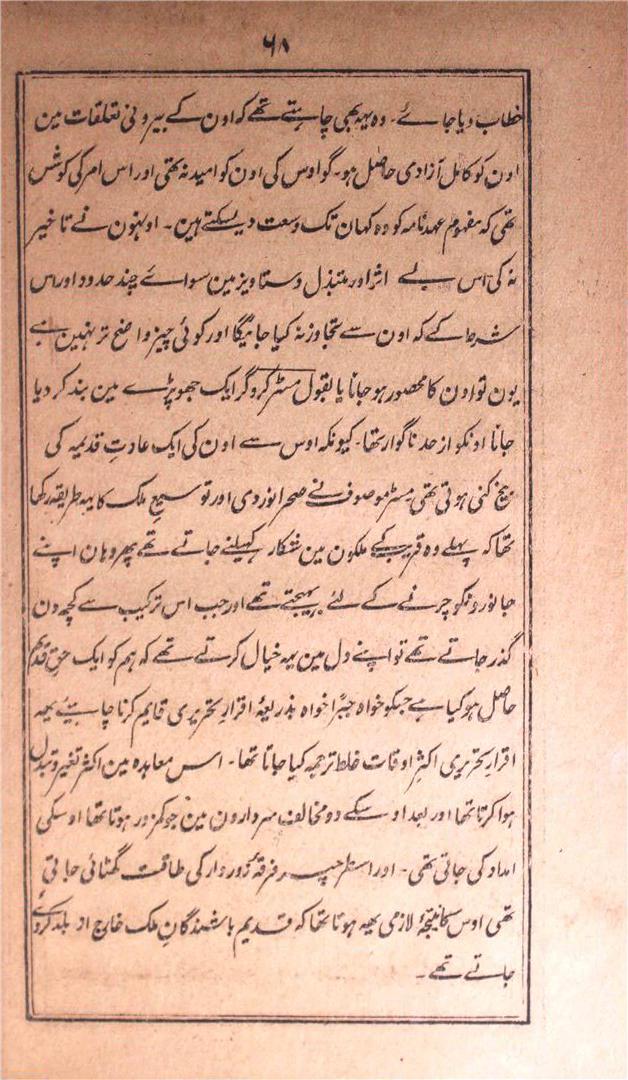 ۶۸
خطاب دیا جائے۔ وہ یہہ بھی چاہتے تھے کہ اون کے بیرونی تعلقات مین
اون کو کامل آزادی حاصل ہو۔ گو اوس کی اون کو امید نہ تھی اور اس امر کی کوشش
تھی کہ مفہوم عہدنامہ کو وہ کہان تک وسعت دیسکتے ہین۔ اونہون نے تاخیر
نہ کی اس لیے اثر اور متبذل دستاویز مین سوائے چند حدود اور اس
شرط کے کہ اون سے تجاوز نہ کیا جائیگا اور کوئی چیز واضح تر نہین ہے
یون تو اون کا محصور ہو جانا یا بقول مسٹر کروگر ایک جھوپڑے مین بند کر دیا
جانا اونکو از حد ناگوار تھا۔ کیونکہ اوس سے اون کی ایک عادتِ قدیمہ کی
بیخ کنی ہوتی تھی مسٹر موصوف نے صحرا نوردی اور توسیعِ ملک کا یہہ طریقہ رکھا
تھا کہ پہلے وہ قریب کے ملکون مین شکار کہیلنے جاتے تھے پھر وہان اپنے
جانورونکو چرنے کے لئے بہیجتے تھے اور جب اس ترکیب سے کچھ دن
گذر جاتے تھے تو اپنے دل مین یہہ خیال کرتے تھے کہ ہم کو ایک حقِ قدیم
حاصل ہو گیا ہے جسکو خواہ جبراً خواہ بذریعۂ اقرار تحریری قایم کرنا چاہیئے یہہ
اقرارِ تحریری اکثر اوقات غلط ترجمہ کیا جاتا تھا۔ اس معاہدہ مین اکثر تغیر و تبدل
ہوا کرتا تھا اور بعد اوسکے دو مخالف سردارون مین جو کمزور ہوتا تھا اوسکی
امداد کی جاتی تھی۔ اور اسطرحپر فرقۂ زوردار کی طاقت گھٹائی جاتی
تھی اوس کا نتیجۂ لازمی یہہ ہوتا تھا کہ قدیم باشندگانِ ملک خارج از بلد کردئے
جاتے تھے۔